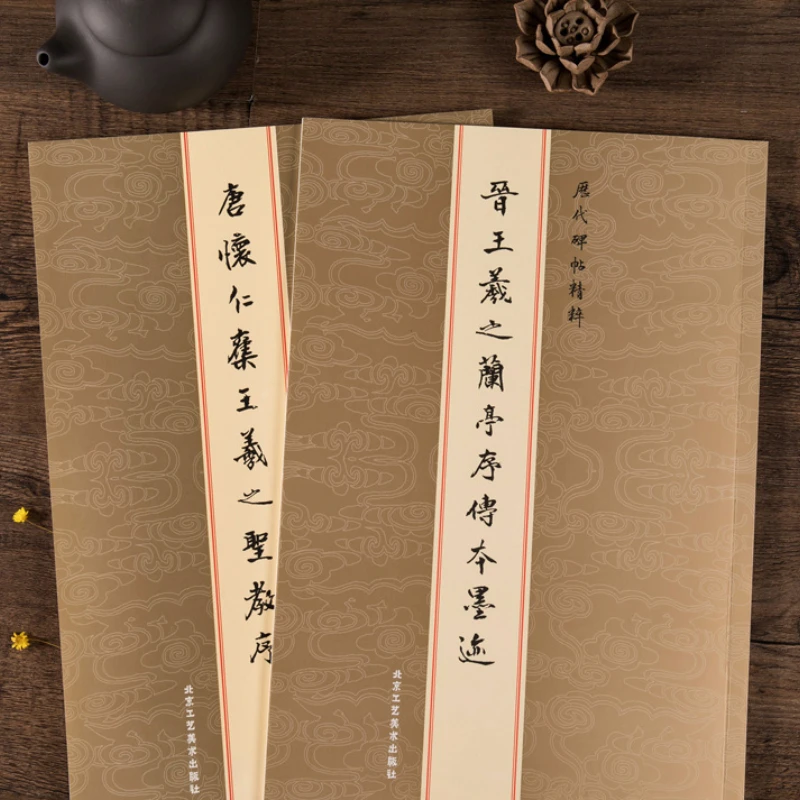 歷代碑帖精粹
晉王羲之蘭亭序傳本墨迹
北京工艺美术出版社
唐懷仁集王羲之聖教序
北京工艺美术出版社